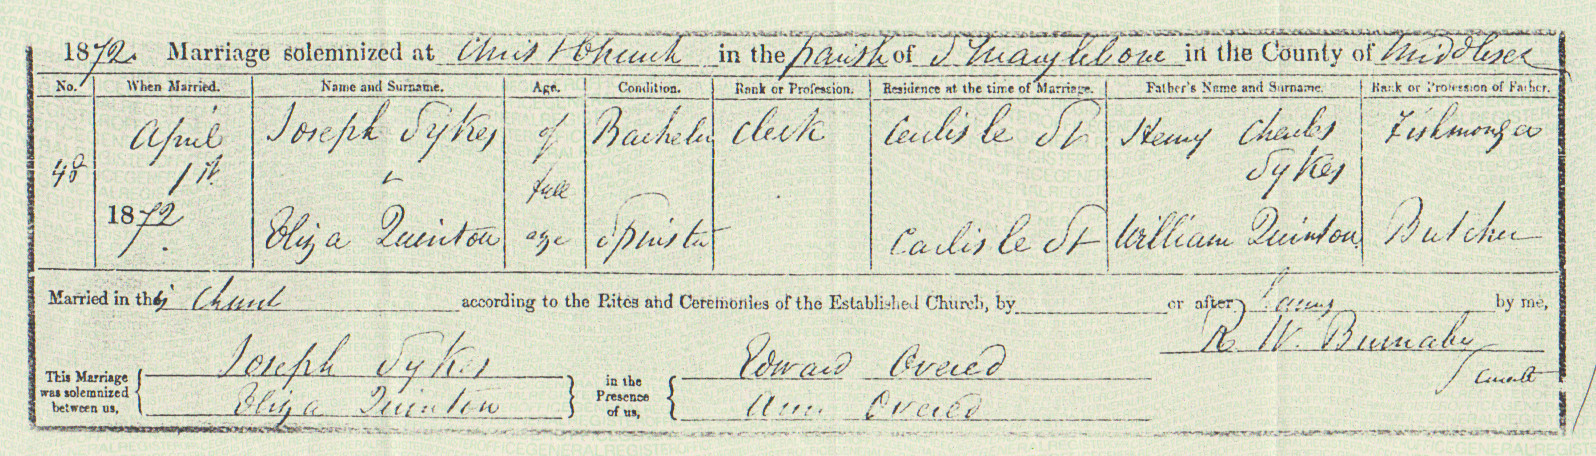 1872. Marriage solemnized at Christ Church in the parish of St Marylebone in the County of Middlesex
No. When Married. Name and Surname. Age. Condition. Rank or Profession. Residence at the time of Marriage. Father's Name and Surname. Rank or Profession of Father.
April Joseph Sykes of Bachelor Clerk Carlisle St Henry Charles Fishmonger
48 1st full Sykes
1872 Eliza Quinton age Spinster Carlisle St William Quinton Butcher
Married in this Church according to the Rites and Ceremonies of the Established Church, by or after Banns by me,
R. W. Burnaby
Joseph Sykes Edward Overed
Curate
This Marriage was solemnized between us, in the Presence of us,
Eliza Quinton Ann Overed